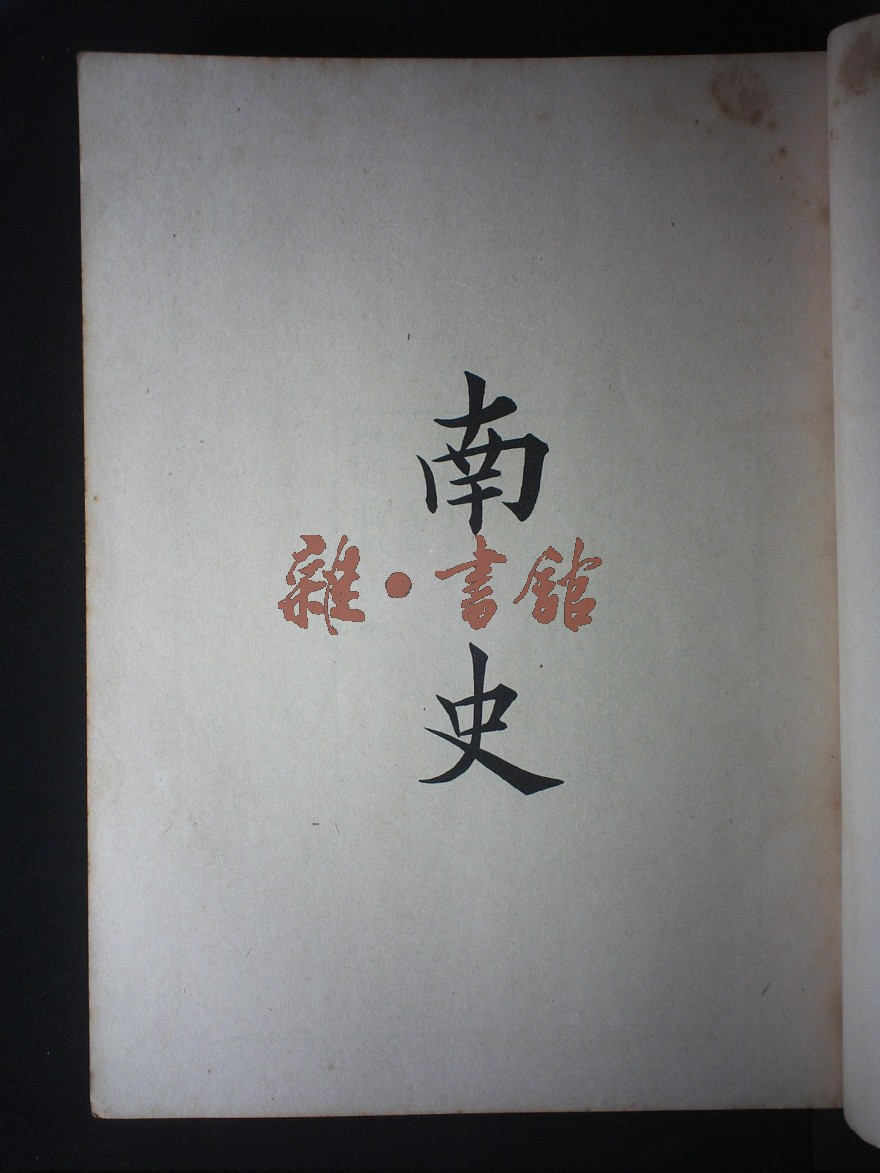 南
雜·書館
史